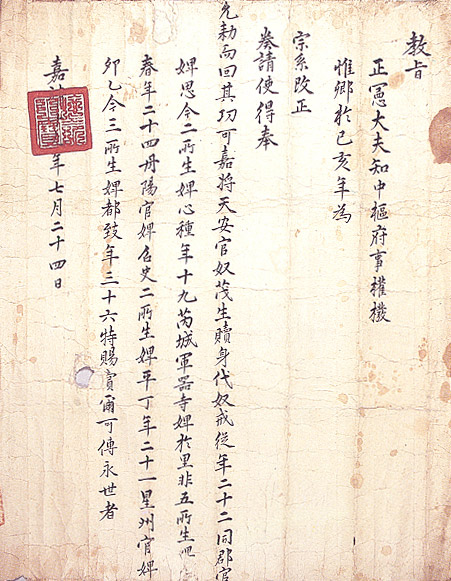 教旨
正憲大夫知中樞府事權橃
惟卿於己亥年為
宗系改正
奏請使得奉
允勅而回其功可嘉將天安官奴茂生贖身代奴戒從年二十二同郡官
婢思今二所生婢心種年十九芮城軍器寺婢於里非五所生
春年二十四丹陽官婢召史二所生婢平丁年二十一星州官婢
卯乙今三所生婢都致年三十六特賜賞爾可傳永世者
嘉 年七月二十四日